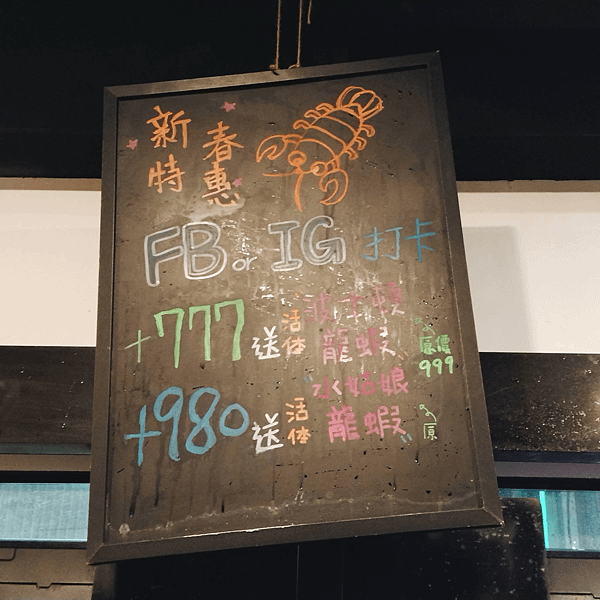 新春
特惠
FB or IG 打卡
+777 送 活体 波士頓龍蝦 原價 999
+980 送 活体 "水姑娘龍蝦" 原